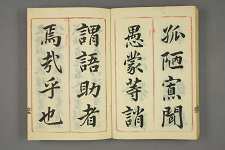 孤陋寡聞
愚蒙等誚
謂語助者
焉哉乎也